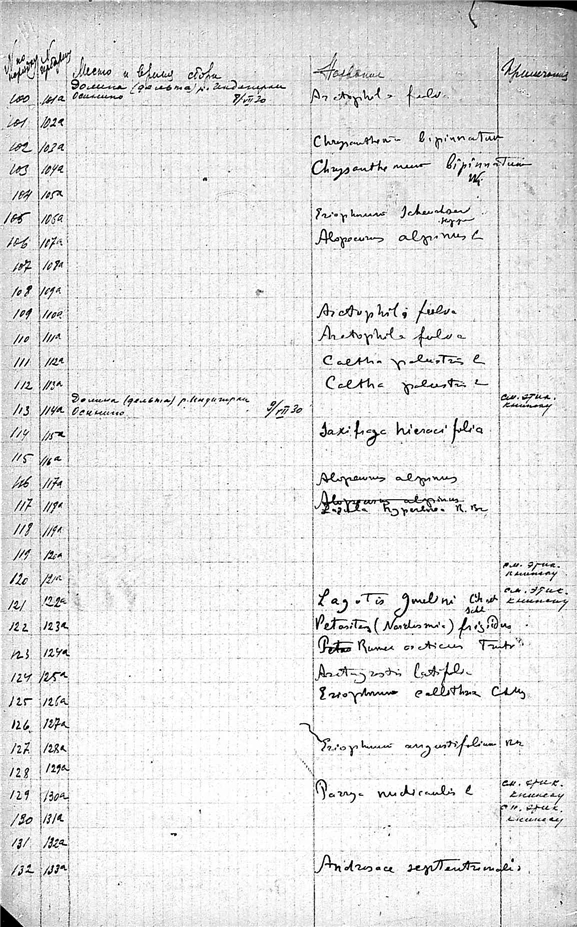 № по порядку № гербария Место и время сбора Название Примечание
100 101а Долина (дельта) р. Индигирки Arctophila fulva
Осенкино 8/VII 30
101 102а
102 103а Chrysanthemum bipinnatum
103 104а Chrysanthemum bipinnatum
104 105а
105 106а Eriophorum Scheuchzer
Hoppe
106 107а Alopecurus alpinus L
107 108а
108 109а
109 110а Arctophila fulva
110 111а Arctophila fulva
111 112а Caltha palustris L
112 113а Caltha palustris L
113 114а Долина (дельта) р. Индигирки 9/VII 30 см. этик.
книжку
114 115а Saxifraga hieracifolia
115 116а
116 117а Alopecurus alpinus
117 118а Alopecurus alpinus
Luzula hyperborea R. Br.
118 119а
119 120а
120 121а см. этик.
книжку
121 122а Lagotis gmelini см. этик.
книжку
122 123а Petasites (Nardosmia) frigidus
123 124а Rumex arcticus Trautv
124 125а Arctagrostis latifolia
125 126а Eriophorum callithrix Cham
126 127а
127 128а Eriophorum angustifolium
128 129а
129 130а Parrya nudicaulis L см. этик.
книжку
130 131а см. этик.
книжку
131 132а
132 133а Androsace septentrionalis